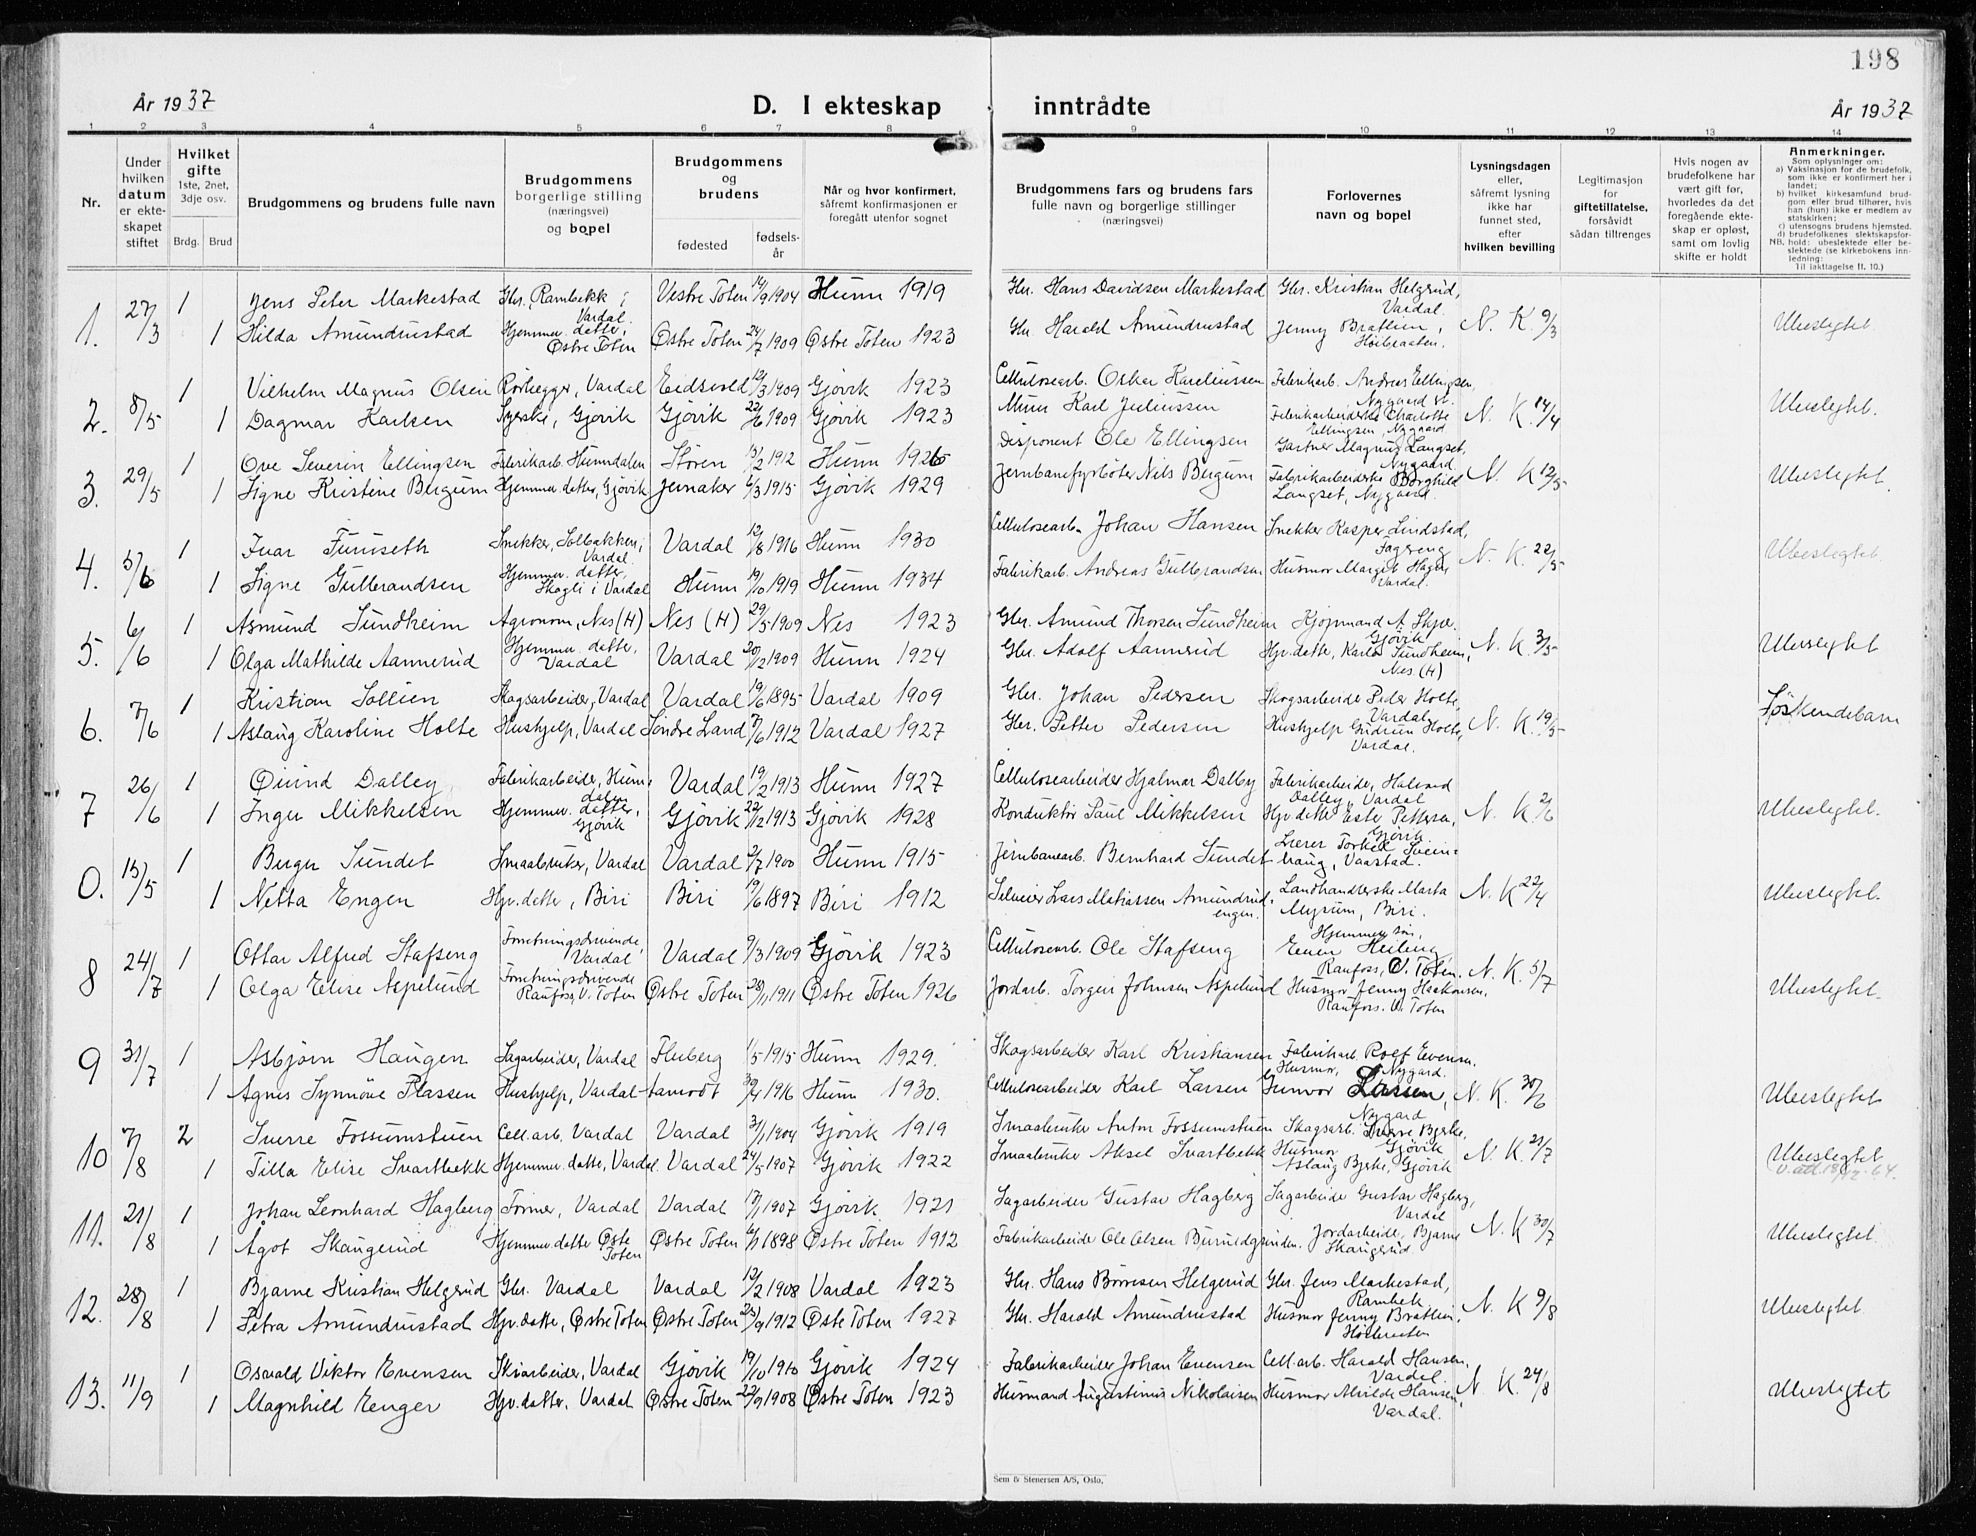 198
År 1937
D. I ekteskap inntrådte
År 1937
1 2 3 4 5 6 7 8 9 10 11 12 13 14
Nr.
Under hvilken datum er ekteskapet stiftet
Hvilket gifte 1ste, 2net, 3dje osv.
Brdg. Brud
Brudgommens og brudens fulle navn
Brudgommens borgerlige stilling (næringsvei) og bopel
Brudgommens og brudens
fødested
fødselsår
Når og hvor konfirmert, såfremt konfirmasjonen er foregått utenfor sognet
Brudgommens fars og brudens fars fulle navn og borgerlige stillinger (næringsvei)
Forlovernes navn og bopel
Lysningsdagen eller, såfremt lysning ikke har funnet sted, efter hvilken bevilling
Legitimasjon for giftetillatelse, forsåvidt sådan tiltrenges
Hvis nogen av brudefolkene har vært gift før, hvorledes da det foregående ekteskap er opløst, samt om lovlig skifte er holdt
Anmerkninger.
Som oplysninger om:
a) Vaksinasjon for de brudefolk, som ikke er konfirmert her i landet;
b) hvilket kirkesamfund brudgom eller brud tilhører, hvis han (hun) ikke er medlem av statskirken;
c) utensogns brudens hjemsted.
d) brudefolkenes slektskapsforhold: ubeslektede eller beslektede (se kirkebokens innledning:
NB.
Til iakttagelse ll. 10.)
1. 27/3 1 Jens Peter Markestad Gbr. Rambekk i Vardal. Vestre Toten 14/9 1904 Hunn 1919 Gbr. Hans Davidsen Markestad Gbr. Kristian Helgerud, Vardal. N. K. 9/3
1 Hilda Amundrustad Hjemmev. datter, Østre Toten Østre Toten 24/7 1909 Østre Toten 1923 Gbr Harald Amundrustad Jenny Bratlien, Høibraaten. Ubeslegtet
2. 8/5 1 Vilhelm Magnus Olsen Rørlegger, Vardal Eidsvold 12/3 1909 Gjøvik 1923 Cellulosearb. Oskar Kareliussen Fabrikarb. Andreas Ellingsen, Nygaard N. K. 14/4
1 Dagmar Karlsen Syerske, Gjøvik Gjøvik 22/6 1909 Gjøvik 1923 Murer Karl Juliussen Fabrikarbeiderske Charlotte Ellingsen, Nygaard Ubeslegtet.
3. 29/5 1 Ove Severin Ellingsen Fabrikarb. Hunndalen Støren 15/2 1912 Hunn 1926 Disponent Ole Ellingsen Gartner Magnus Langset, Nygaard N. K 12/5
1 Signe Kristine Bergum Hjemmev. datter, Gjøvik Jevnaker 6/3 1915 Gjøvik 1929 Jernbanefyrbøter Nils Bergum Fabrikarbeiderske Borghild Langset, Nygaard. Ubeslegtet.
4. 5/6 1 Ivar Furuseth Snekker, Solbakken i Vardal. Vardal 12/8 1916 Hunn 1930 Cellulosearb. Johan Hansen Snekker Kasper Lindstad, Fagreng N. K. 22/5
1 Signe Gulbrandsen Hjemmev. datter, Skogli i Vardal Hunn 19/10 1919 Hunn 1934 Fabrikarb. Andreas Gulbrandsen Husmor Margit Hagen Vardal. Ubeslegtet
5. 6/6 1 Asmund Sundheim Agronom, Nes (H) Nes (H) 29/5 1909 Nes 1923 Gbr. Amund Thorsen Sundheim Kjøpmand A. Skjæ. Gjøvik N. K. 3/5
1 Olga Mathilde Aannerud Hjemmev. datter, Vardal Vardal 20/12 1909 Hunn 1924 Gbr. Adolf Aannerud Hjv. datter, Karla Sundheim, Nes (H) Ubeslegtet
6. 7/6 1 Kristian Sollien Skogsarbeider, Vardal Vardal 19/6 1895 Vardal 1909 Gbr. Johan Pedersen Skogsarbeide Peder Holte, Vardal N. K. 19/5
1 Aslaug Karoline Holte Hushjelp, Vardal Søndre Land 7/6 1912 Vardal 1927 Gbr. Petter Pedersen Hushjelp Gudrun Holte, Vardal. Søskendebarn
7 26/6 1 Øivind Dalby Fabrikarbeider, Hunndalen Vardal 19/2 1913 Hunn 1927 Cellulosearbeider Hjalmar Dalby Fabrikarbeide, Halvard Dalby, Vardal N. K. 2/6
1 Inger Mikkelsen Hjemmev. datter, Gjøvik Gjøvik 22/12 1913 Gjøvik 1928 Konduktør Paul Mikkelsen Hjv datter Ester Pettersen, Gjøvik Ubeslegtet.
0. 15/5 1 Birger Sundet Smaabruker, Vardal Vardal 2/7 1900 Hunn 1915 Jernbanearb. Bernhard Sundet Lærer Torkel Sveinhaug, Vaastad. N. K 22/4
1 Netta Engen Hjv. datter, Biri Biri 19/6 1897 Biri 1912 Selveier Lars Mathiassen Amundrudengen. Landhandlerske Marta Myrum, Biri. Ubeslegtet.
8 24/7 1 Ottar Alfred Stafseng Forretningsdrivende, Vardal Vardal 9/3 1909 Gjøvik 1923 Cellulosearb. Ole Stafseng Hjemmev. søn, Einar Heiling, Raufoss, V. Toten. N. K. 5/7
1 Olga Elise Aspelund Forretningsdrivende Raufoss, V. Toten Østre Toten 28/11 1911 Østre Toten 1926 Jordarb. Torgeir Johnsen Aspelund Husmor Jenny Haakonsen, Raufoss. V. Toten Ubeslegtet.
9 31/7 1 Asbjørn Haugen Sagarbeider, Vardal Fluberg 1/5 1915 Hunn 1929. Skogsarbeider Karl Kristiansen Fabrikarb. Rolf Evensen. Nygard. N. K. 30/6
1 Agnes Synnøve Plassen Hushjelp, Vardal Åamodt 30/4 1916 Hunn 1930. Cellulosearbeider Karl Larsen Husmor, Gunvor Larsen, Nygard Ubeslegtet
10 7/8 2 Sverre Fossumstuen Cell. arb. Vardal Vardal 31/1 1904 Gjøvik 1919 Smaabruker Anton Fossumstuen Skogsarb. Sverre Bjerke, Gjøvik N. K. 21/7
1 Tilla Elise Svartbekk Hjemmev. datter, Vardal. Vardal 24/5 1907 Gjøvik 1922 Smaabruker Aksel Svartbekk Husmor Aslaug Bjerke, Gjøvik Ubeslegtet
V. att 18/12-64.
11. 21/8 1 Johan Leonhard Hagberg Former, Vardal Vardal 17/1 1907 Gjøvik 1921 Sagarbeider Gustav Hagberg Sagarbeide Gustav Hagberg, Vardal N. K 30/7
1 Ågot Skaugerud Hjemmev. datter Øste Toten Østre Toten 6/1 1898 Østre Toten 1912 Fabrikarbeide Ole Olsen Jordarbeide, Bjarne Skaugerud Ubeslegtet.
12. 28/8 1 Bjarne Kristian Helgerud Gbr. Vardal Vardal 12/2 1908 Vardal 1923 Gbr. Hans Børresen Helgerud Gbr. Jens Markestad, Rambek N. K 9/8
1 Petra Amundrustad Hjv. datter, Østre Toten Østre Toten 25/9 1912 Øste Toten 1927 Gbr. Harald Amundrustad Husmor Jenny Bratlien, Høibraten Ubeslegtet.
13. 11/9 1 Osvald Viktor Evensen Skivarbeider, Vardal Gjøvik 19/10 1910 Gjøvik 1924 Fabrikarbeider Johan Evensen Cell. arb. Harald Hansen, Vardal. N. K. 24/8
1 Magnhild Enger Hjv. datter. Vardal Østre Toten 22/9 1908 Østre Toten 1923 Husmand Augustinus Nikolaisen Husmor Alvilde Hansen, Vardal. Ubeslegtet
Sem & Stenersen A/S, Oslo.